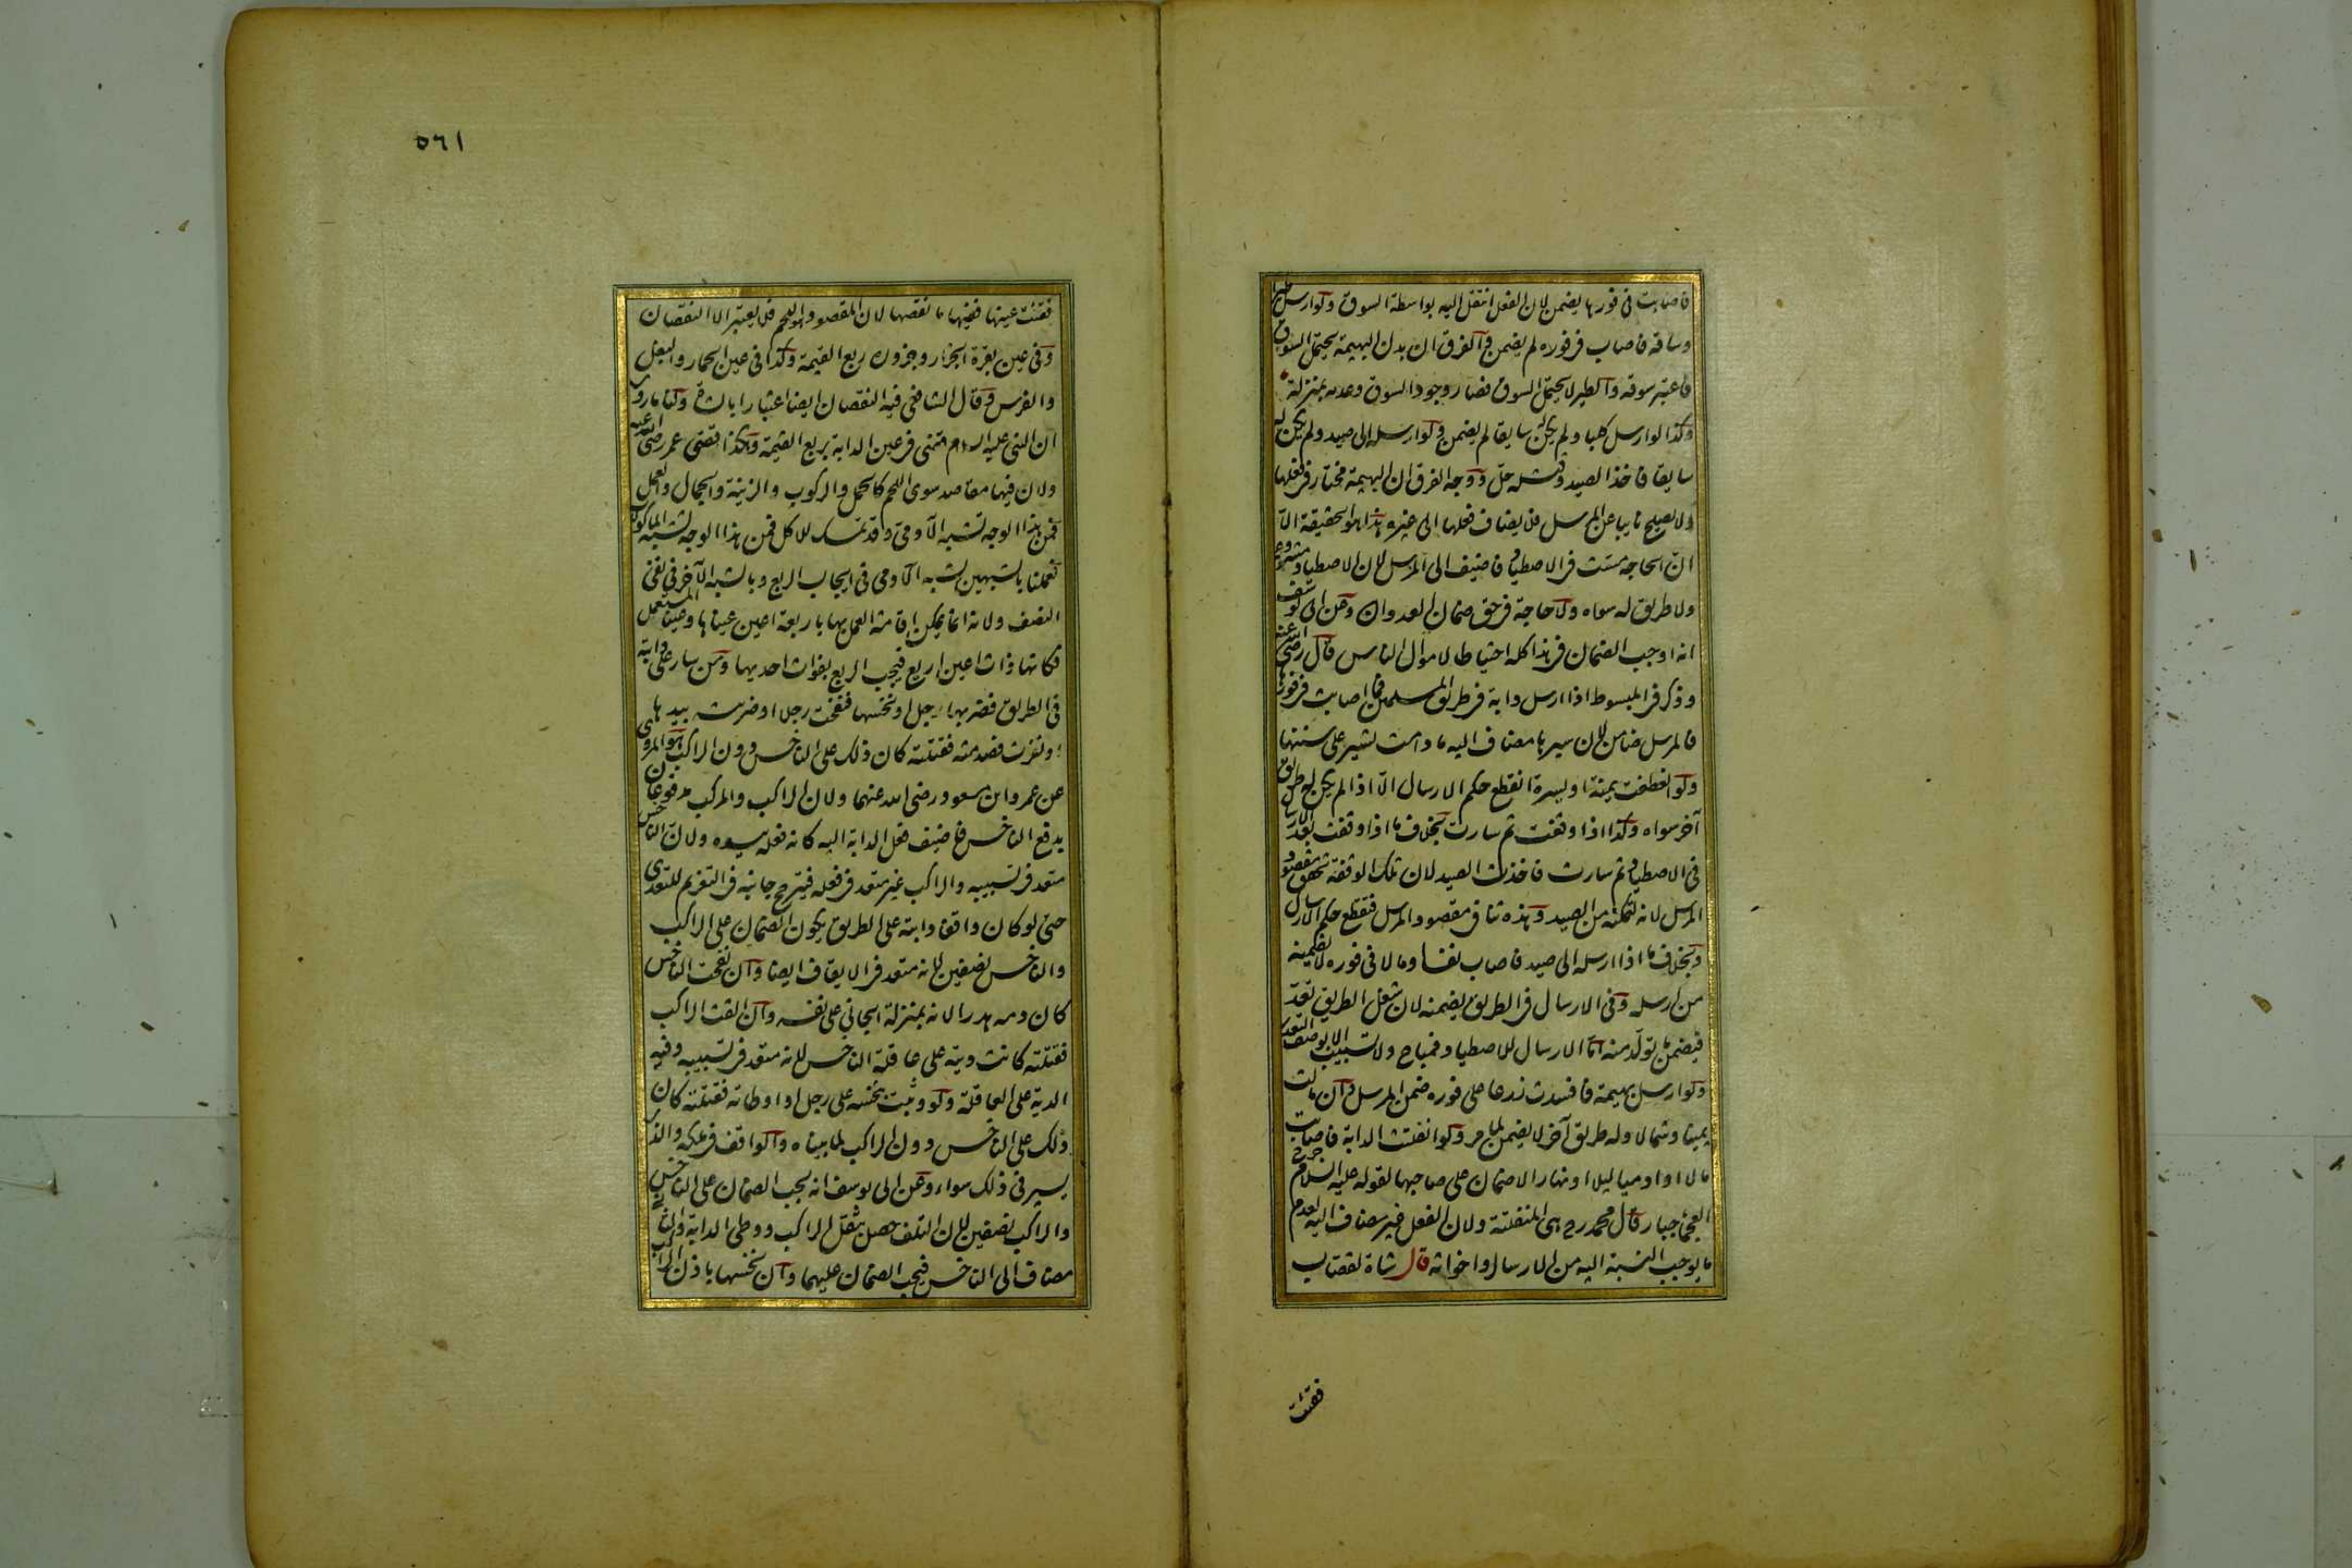 فاصابت فى فورها يضمن لان الفعل انتقل اليه بواسطة السوق ولو ارسل طيرا
وساقه فاصاب فى فوره لم يضمن والفرق ان بدن البهيمة يحتمل السوق
فاعتبر سوقه والطير لا يحتمل السوق فصار وجود السوق وعدمه بمنزلة
وكذا لو ارسل كلبا ولم يكن له سايقا لم يضمن ولو ارسله الى صيد ولم يكن له
سايقا فاخذ الصيد وقتله حل ووجه الفرق ان البهيمة مختار فى فعلها
ولا يصلح نايبا عن المرسل فلا يضاف فعلها الى غيره هذا هو الحقيقة الا
ان الحاجة مست فى الاصطياد فاضيف الى المرسل لان الاصطياد مشروع
ولا طريق له سواه ولا حاجة فى حق ضمان العدوان وعن ابى يوسف
انه اوجب الضمان فى هذا كله احتياطا لاموال الناس قال رضى الله عنه
وذكر فى المبسوط اذا ارسل دابة فى طريق المسلمين فما اصابت فى فورها
فالمرسل ضامن لان سيرها مضاف اليه ما دامت تسير على سننها
ولو انعطفت يمنة او يسرة انقطع حكم الارسال الا اذا لم يكن له طريق
آخر سواه وكذا اذا وقفت ثم سارت بخلاف ما اذا وقفت بعد الارسال
فى الاصطياد ثم سارت فاخذت الصيد لان تلك الوقفة تحقق مقصود
المرسل لانه لتمكنه من الصيد وهذه تنافى مقصود المرسل فتقطع حكم الارسال
وبخلاف ما اذا ارسله الى صيد فاصاب نفسا او مالا فى فوره لا يضمنه
من ارسله وفى الارسال فى الطريق يضمنه لان شغل الطريق تعد
فيضمن ما تولد منه اما الارسال للاصطياد فمباح ولا تسبيب الا بوصف التعدى
ولو ارسل بهيمة فافسدت زرعا على فوره ضمن المرسل وان مالت
يمينا وشمالا وله طريق آخر لا يضمن لما مر ولو انفلتت الدابة فاصابت
مالا او آدميا ليلا او نهارا لا ضمان على صاحبها لقوله عليه السلام جرح
العجماء جبار قال محمد رح هى المنفلتة ولان الفعل غير مضاف اليه لعدم
ما يوجب النسبة اليه من الارسال واخواته قال شاة لقصاب
فقئت
٥٦١
فقئت عينها ففيها ما نقصها لان المقصود هو اللحم فلا يعتبر الا النقصان
وفى عين بقرة الجزار وجزوره ربع القيمة وكذا فى عين الحمار والبغل
والفرس وقال الشافعى فيه النقصان ايضا اعتبارا بالشاة ولنا ما روى
ان النبى عليه السلام قضى فى عين الدابة بربع القيمة وهكذا قضى عمر رضى الله عنه
ولان فيها مقاصد سوى اللحم كالحمل والركوب والزينة والجمال والعمل
فمن هذا الوجه تشبه الآدمى وقد تمسك للاكل فمن هذا الوجه تشبه الماكولات
فعملنا بالشبهين بشبه الآدمى فى ايجاب الربع وبالشبه الآخر فى نفى
النصف ولانه انما يمكن اقامة العمل بها باربعة اعين عيناها وعينا المستعمل
فكانها ذات اعين اربع فيجب الربع بفوات احديها ومن سار على دابة
فى الطريق فضربها رجل او نخسها فنفحت رجلا او ضربته بيدها
او نفرت فصدمته فقتلته كان ذلك على الناخس دون الراكب هو المروى
عن عمر وابن مسعود رضى الله عنهما ولان الراكب والمركب مدفوعان
يدفع الناخس فاضيف فعل الدابة اليه كانه فعله بيده ولان الناخس
متعد فى تسبيبه والراكب غير متعد فى فعله فيترجح جانبه فى التغريم للتعدى
حتى لو كان واقفا دابته على الطريق يكون الضمان على الراكب
والناخس نصفين لانه متعد فى الايقاف ايضا وان نفحت الناخس
كان دمه هدرا لانه بمنزلة الجانى على نفسه وان القت الراكب
فقتلته كانت ديته على عاقلة الناخس لانه متعد فى تسبيبه وفيه
الدية على العاقلة ولو وثبت بنخسه على رجل او اوطاته فقتلته كان
ذلك على الناخس دون الراكب لما بيناه والواقف فى ملكه والذى
يسير فى ذلك سواء وعن ابى يوسف انه يجب الضمان على الناخس
والراكب نصفين لان التلف حصل بثقل الراكب ووطى الدابة والثانى
مضاف الى الناخس فيجب الضمان عليهما وان نخسها باذن الراكب